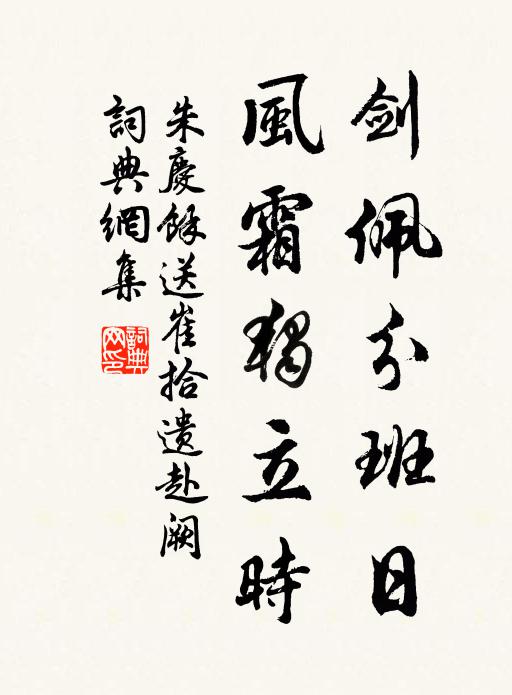 劍佩分班日
風霜獨立時
朱慶餘送崔拾遺赴闕
詞典網集
詞典網印